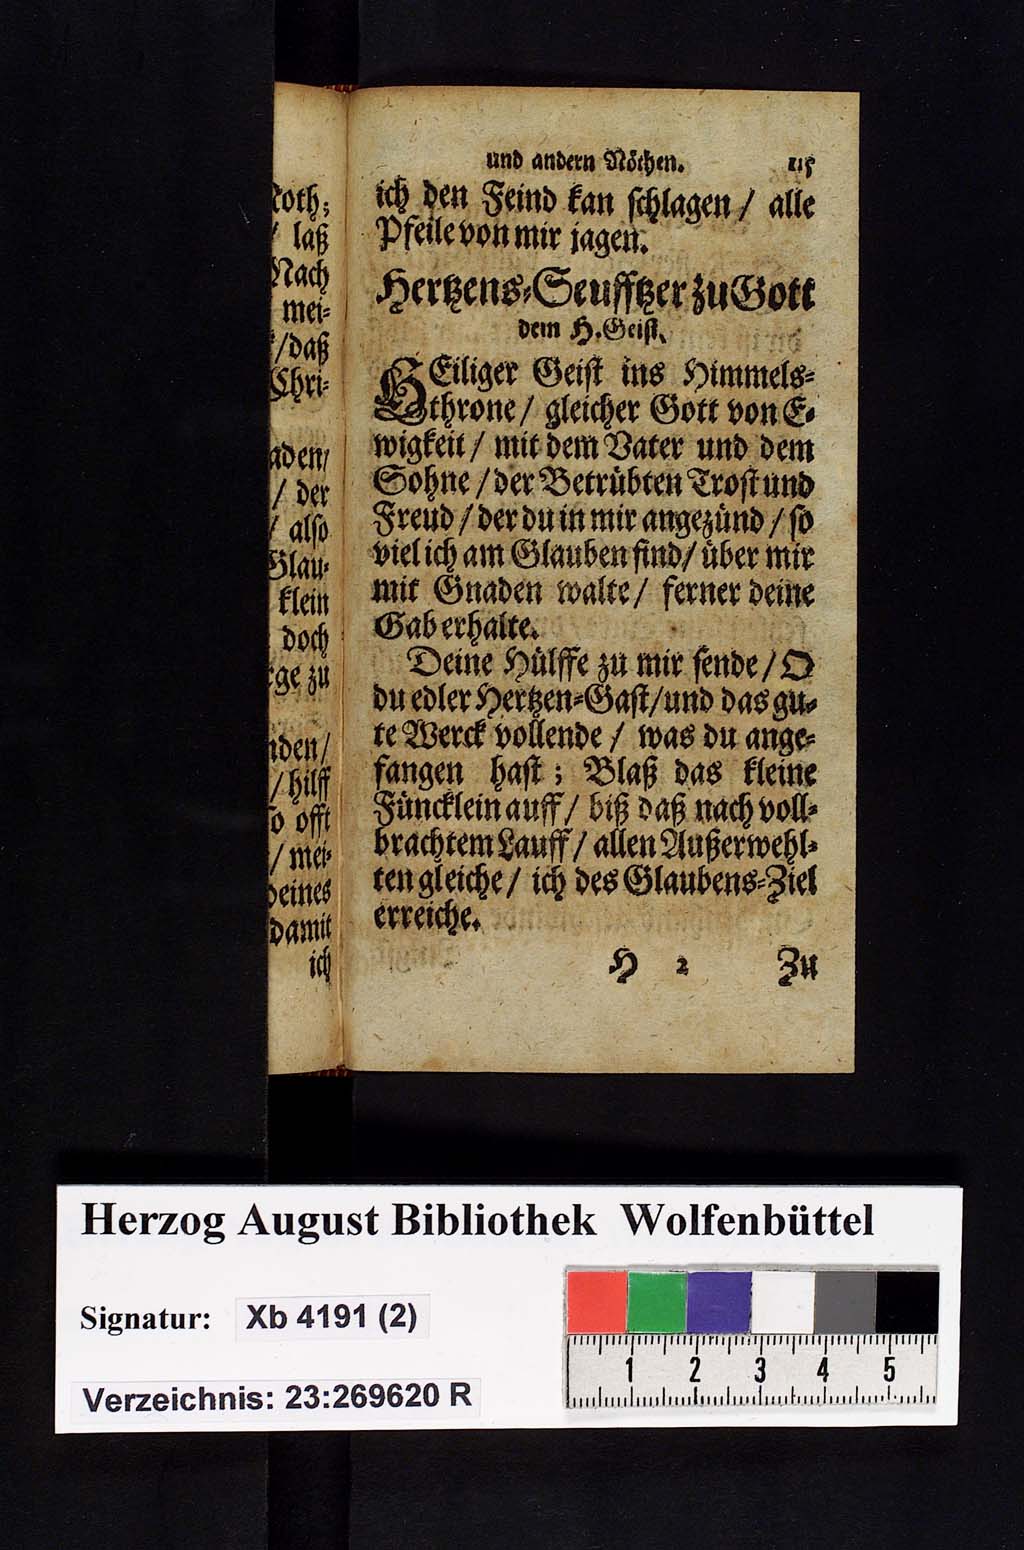 Noth;
/ laß
Nach
mei-
/daß
Chri-
aden/
/ der
/ also
Glau-
klein
doch
rge zu
nden/
/ hilff
so offt
/ mei-
deines
damit
ich
und andern Nöthen. 115
ich den Feind kan schlagen / alle
Pfeile von mir jagen.
Hertzens-Seufftzer zu Gott
dem H. Geist.
HEiliger Geist ins Himmels-
throne / gleicher Gott von E-
wigkeit / mit dem Vater und dem
Sohne / der Betrübten Trost und
Freud / der du in mir angezünd / so
viel ich am Glauben find / über mir
mit Gnaden walte / ferner deine
Gab erhalte.
Deine Hülffe zu mir sende / O
du edler Hertzen-Gast / und das gu-
te Werck vollende / was du ange-
fangen hast ; Blaß das kleine
Füncklein auff / biß daß nach voll-
brachtem Lauff / allen Außerwehl-
ten gleiche / ich des Glaubens-Ziel
erreiche.
H 2 Zu
Herzog August Bibliothek Wolfenbüttel
Signatur: Xb 4191 (2)
Verzeichnis: 23:269620 R
1 2 3 4 5